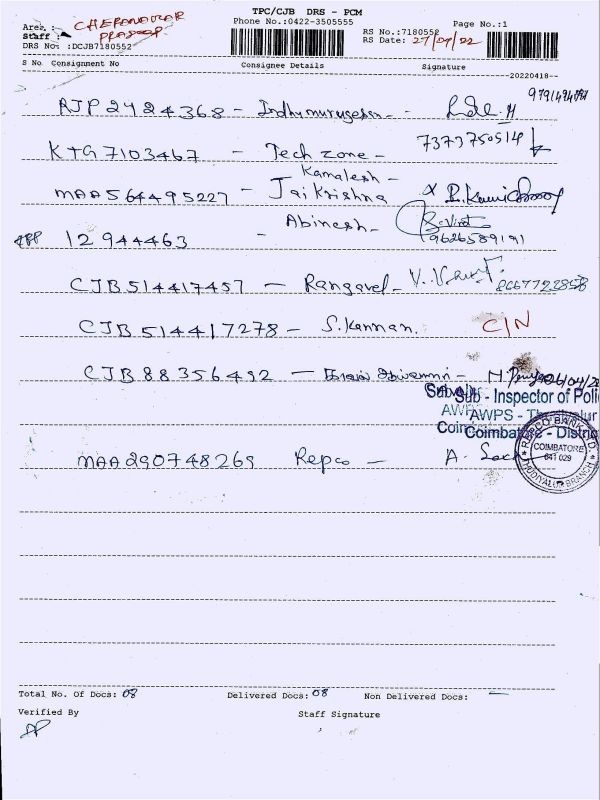 TPC/CJB DRS - PCM
Phone No.:0422-3505555
Page No.:1
Area :
Staff :
DRS No: :DCJB7180552
RS No.:7180552
RS Date: 27/04/22
S No Consignment No Consignee Details Signature
20220418--
RJP 2424368 - Indhumurugesan -
KTG 7103467 - Tech zone - 7373750514
Kamalesh -
MAA 564495227 - Jai Krishna
12944463 - Abinesh - 9626589191
CJB 514417457 - Rangavel - 8667722858
CJB 514417278 - S. Kannan. C/N
CJB 88356492 -
Sub - Inspector of Poli
AWPS - Th
Coimbatore - Distric
MAA 290748269 Repco -
REPCO BANK
COIMBATORE
641 029
THUDIYALUR BRANCH
Total No. Of Docs: 08 Delivered Docs: 08 Non Delivered Docs: —
Verified By Staff Signature